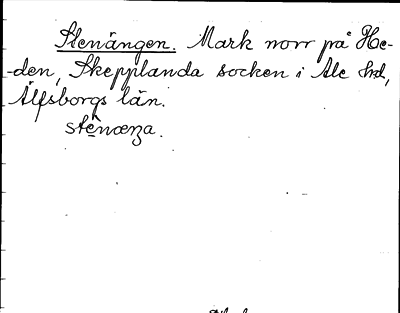 Stenängen. Mark norr på He-
-den, Skepplanda socken i Ale hd,
Älfsborgs län.